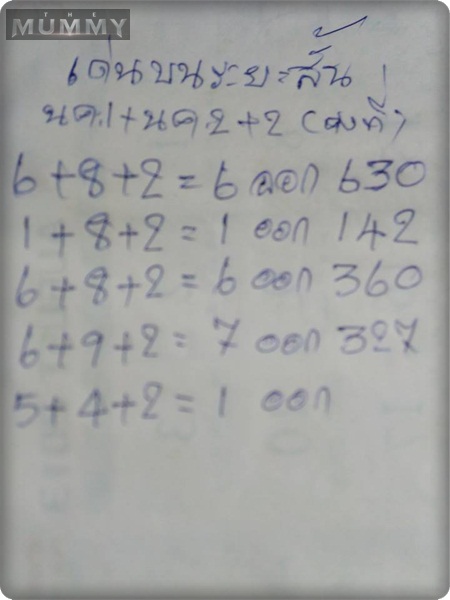 THE
MUMMY
เด่นบนระยะสั้น
นค.1+นค.2+2 (คงที่)
6+8+2=6 ออก 630
1+8+2=1 ออก 142
6+8+2=6 ออก 360
6+9+2=7 ออก 327
5+4+2=1 ออก